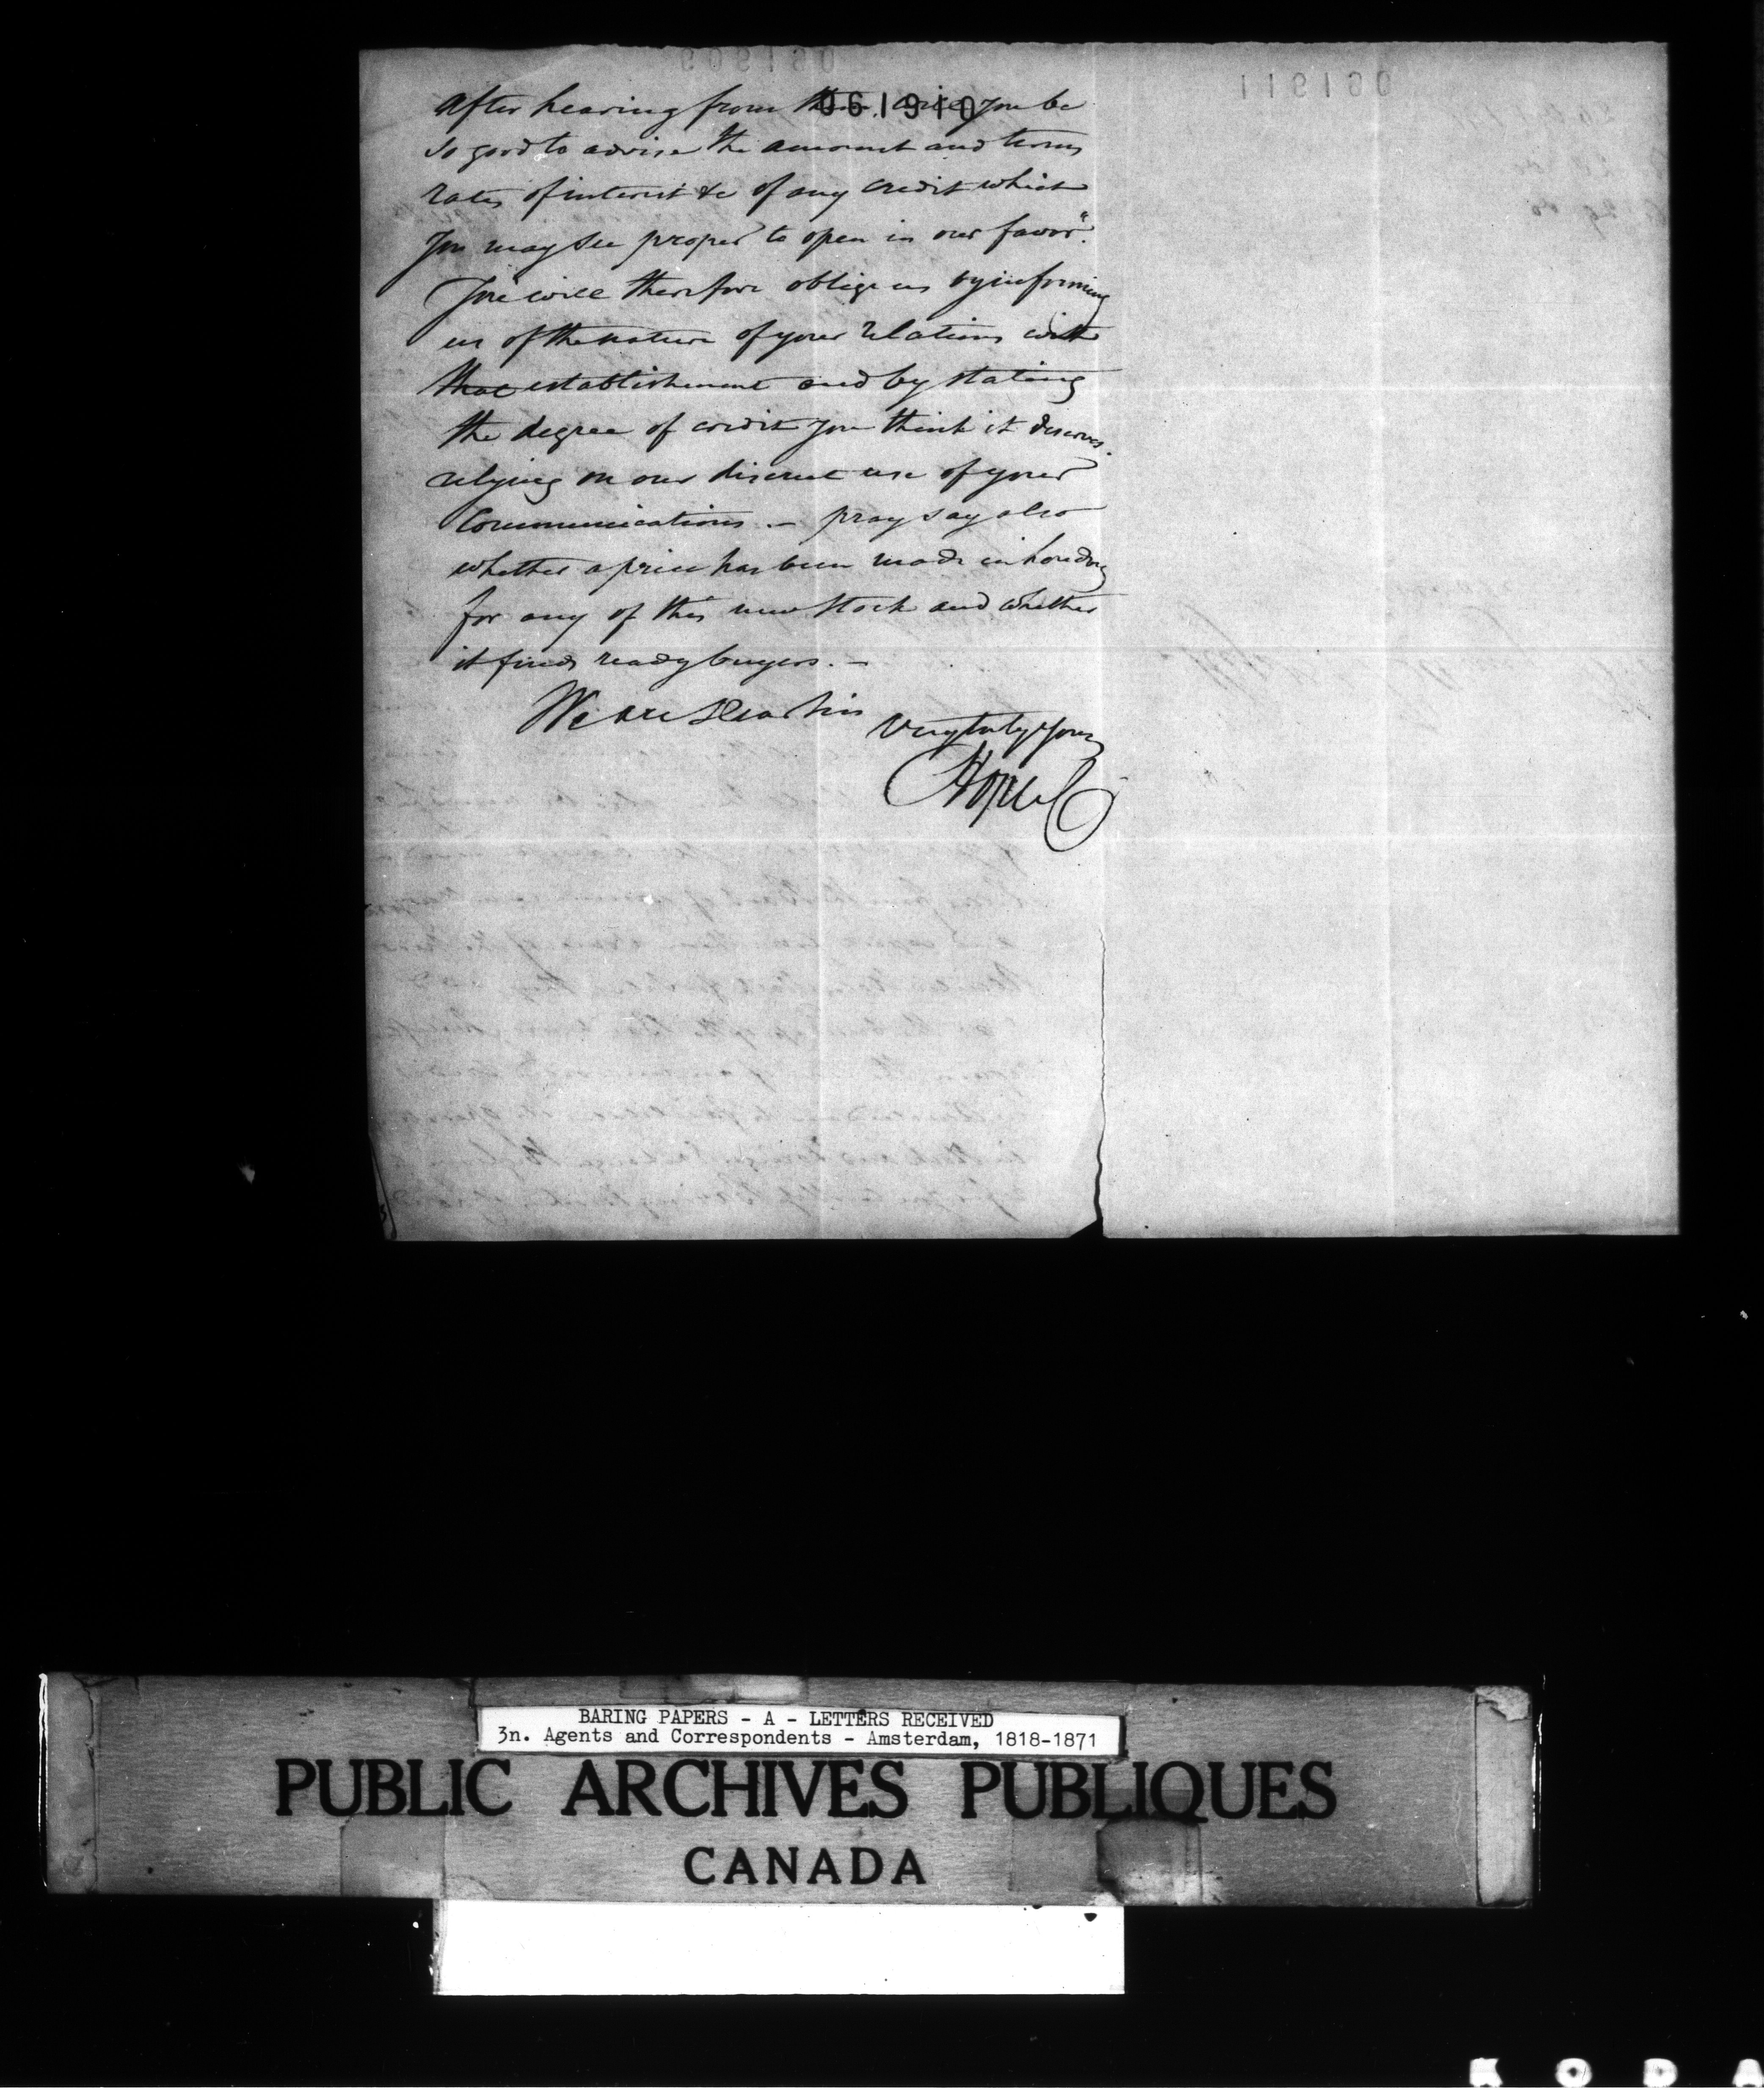 061910
After hearing from them, will you be
so good to advise the amount and terms
rates of interest &c of any credit which
you may see proper to open in our favor".
You will therefore oblige us by informing
us of the nature of your relations with
that establishment and by stating
the degree of credit you think it deserves.
relying on our discreet use of your
Communications. – pray say also
whether a price has been made in London
for any of this new Stock and whether
it finds ready buyers. –
We are Dear Sirs
Very truly Yours
Hope &C
061909
061911
BARING PAPERS - A - LETTERS RECEIVED
3n. Agents and Correspondents - Amsterdam, 1818-1871
PUBLIC ARCHIVES PUBLIQUES
CANADA
K O D A